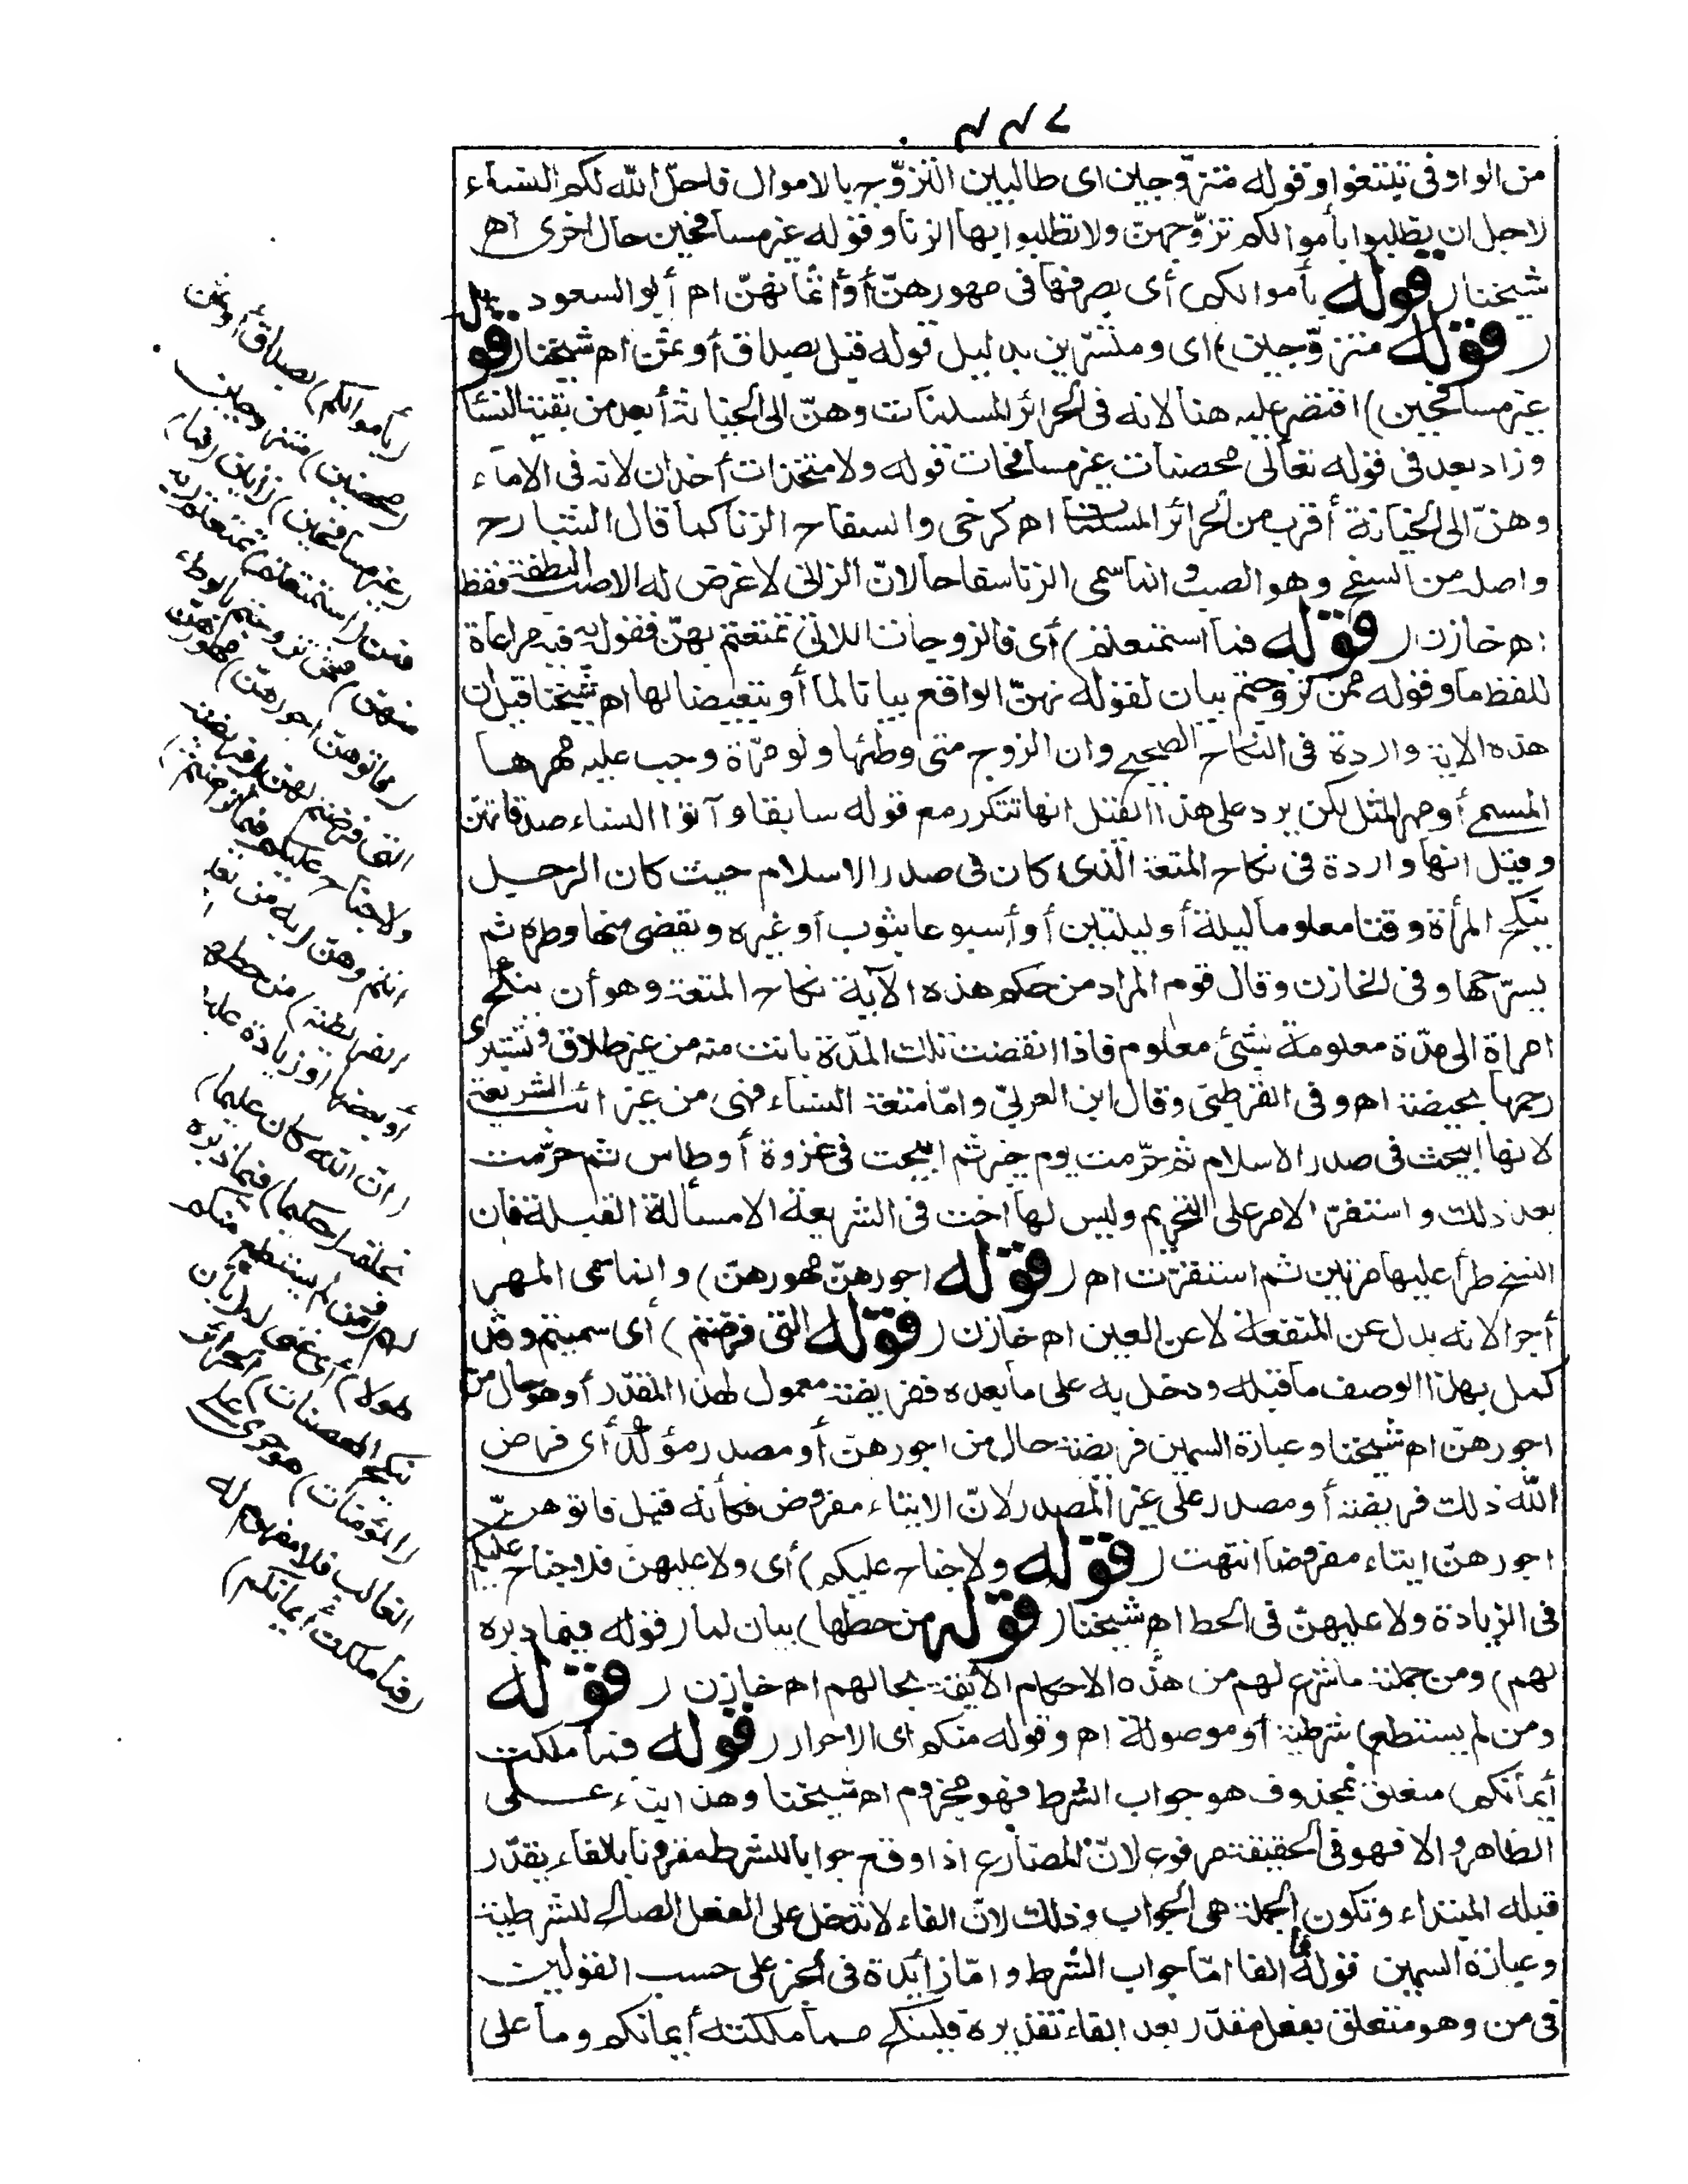 ٧٣٣
من الواو في تبتغوا وقوله متزوّجين اى طالبين التزوّج بالاموال فاحلّ الله لكم النساء
لاجل ان تطلبوا بأموالكم تزوّجهنّ ولا تطلبوا بها الزنا وقوله غير مسافحين حال اخرى اه
شيخنا ( قوله بأموالكم ) أى بصرفها فى مهورهنّ أو أثمانهنّ اه أبو السعود
( قوله متزوّجين ) اى ومتسّرين بدليل قوله قبل بصداق أو ثمن اه شيخنا ( قوله
غير مسافحين ) اقتصر عليه هنا لانه فى الحرائر المسلمات وهنّ الى الخيانة أبعد من بقية النسا
وزاد بعد فى قوله تعالى محصنات غير مسافحات قوله ولا متخذات أخدان لانه فى الاماء
وهنّ الى الخيانة أقرب من الحرائر المسلمات اه كرخى والسفاح الزنا كما قال الشارح
واصله من السفح وهو الصب وانما سمى الزنا سفاحا لانّ الزانى لا غرض له الا صب النطفة فقط
اه خازن ( قوله فما استمتعتم ) أى فالزوجات اللاتى تمتعتم بهنّ فقوله به فيه مراعاة
للفظ ما وقوله ممن تزوجتم بيان لقوله منهنّ الواقع بيانا لما أو تبعيضا لها اه شيخنا قيل ان
هذه الاية واردة فى النكاح الصحيح وان الزوج متى وطئها ولو مرّة وجب عليه مهرها
المسمى أو مهر المثل لكن يرد على هذا القيل انها تتكرر مع قوله سابقا وآتوا النساء صدقاتهنّ
وقيل انها واردة فى نكاح المتعة الّذى كان فى صدر الاسلام حيث كان الرجل
ينكح المرأة وقتا معلوما ليلة أو ليلتين أو أسبوعا بثوب أو غيره ويقضى منها وطره ثم
يسرّحها وفى الخازن وقال قوم المراد من حكم هذه الآية نكاح المتعة وهو أن ينكح
امراة الى مدّة معلومة بشئ معلوم فاذا انقضت تلك المدّة بانت منه من غير طلاق ويستبرى
رحمها بحيضة اه وفى القرطبى وقال ابن العربىّ وامّا متعة النساء فهى من غرائب الشريعة
لانها ابيحت فى صدر الاسلام ثم حرّمت يوم خيبر ثم ابيحت فى غزوة أوطاس ثم حرّمت
بعد ذلك واستقرّ الامر على التحريم وليس لها اخت فى الشريعة الا مسألة القبلة فان
النسخ طرأ عليها مرتين ثم استقرّت اه ( قوله اجورهنّ مهورهنّ ) وانما سمى المهر
أجرا لانه بدل عن المنفعة لا عن العين اه خازن ( قوله التى فرضتم ) أى سميتم وقد
كمل بهذا الوصف ما قبله ودخل به على ما بعده ففريضة معمول لهذا المقدّر أو هو حال من
اجورهنّ اه شيخنا وعبارة السمين فريضة حال من اجورهنّ أو مصدر مؤكد أى فرض
الله ذلك فريضة أو مصدر على غير المصدر لانّ الايتاء مفروض فكأنه قيل فاتوهنّ
اجورهنّ ايتاء مفروضا انتهت ( قوله ولا جناح عليكم ) أى ولا عليهن فلا جناح عليكم
فى الزيادة ولا عليهنّ فى الحط اه شيخنا ( قوله من حطها ) بيان لما ( قوله فيما دبره
لهم ) ومن جملة ما شرع لهم من هذه الاحكام الائقة بحالهم اه خازن ( قوله
ومن لم يستطع ) شرطية أو موصولة اه وقوله منكم اى الاحرار ( قوله فما ملكت
أيمانكم ) متعلق بمحذوف هو جواب الشرط فهو مجزوم اه شيخنا وهذا بناء على
الظاهر والا فهو فى الحقيقة مرفوع لانّ المضارع اذا وقع جوابا للشرط مقرونا بالفاء يقدّر
قبله المبتداء وتكون الجملة هى الجواب وذلك لانّ الفاء لا تدخل على الفعل الصالح للشرطية
وعبارة السمين قوله فما الفا امّا جواب الشرط وامّا زائدة فى الخبر على حسب القولين
فى من وهو متعلق بفعل مقدّر بعد الفاء تقديره فلينكح مما ملكته أيمانكم وما على
( بأموالكم ) بصداق أو ثمن
( محصنين ) متزوجين
( غير مسافحين ) زانين ( فما )
فمن ( استمتعتم ) تمتعتم ( به
منهنّ ) ممن تزوجتم بالوطء
( فاتوهنّ اجورهنّ ) مهورهنّ
التى فرضتم لهن ( فريضة
ولا جناح عليكم فيما تراضيتم )
انتم وهنّ ( به من بعد
الفريضة ) من حطها
أو بعضها أو زيادة عليها
( ان الله كان عليما )
بخلقه ( حكيما ) فيما دبره
لهم ( ومن لم يستطع منكم
طولا ) أى غنى لـ ( أن
ينكح المحصنات ) الحرائر
( المؤمنات ) هو جرى على
الغالب فلا مفهوم له
( فما ملكت أيمانكم )